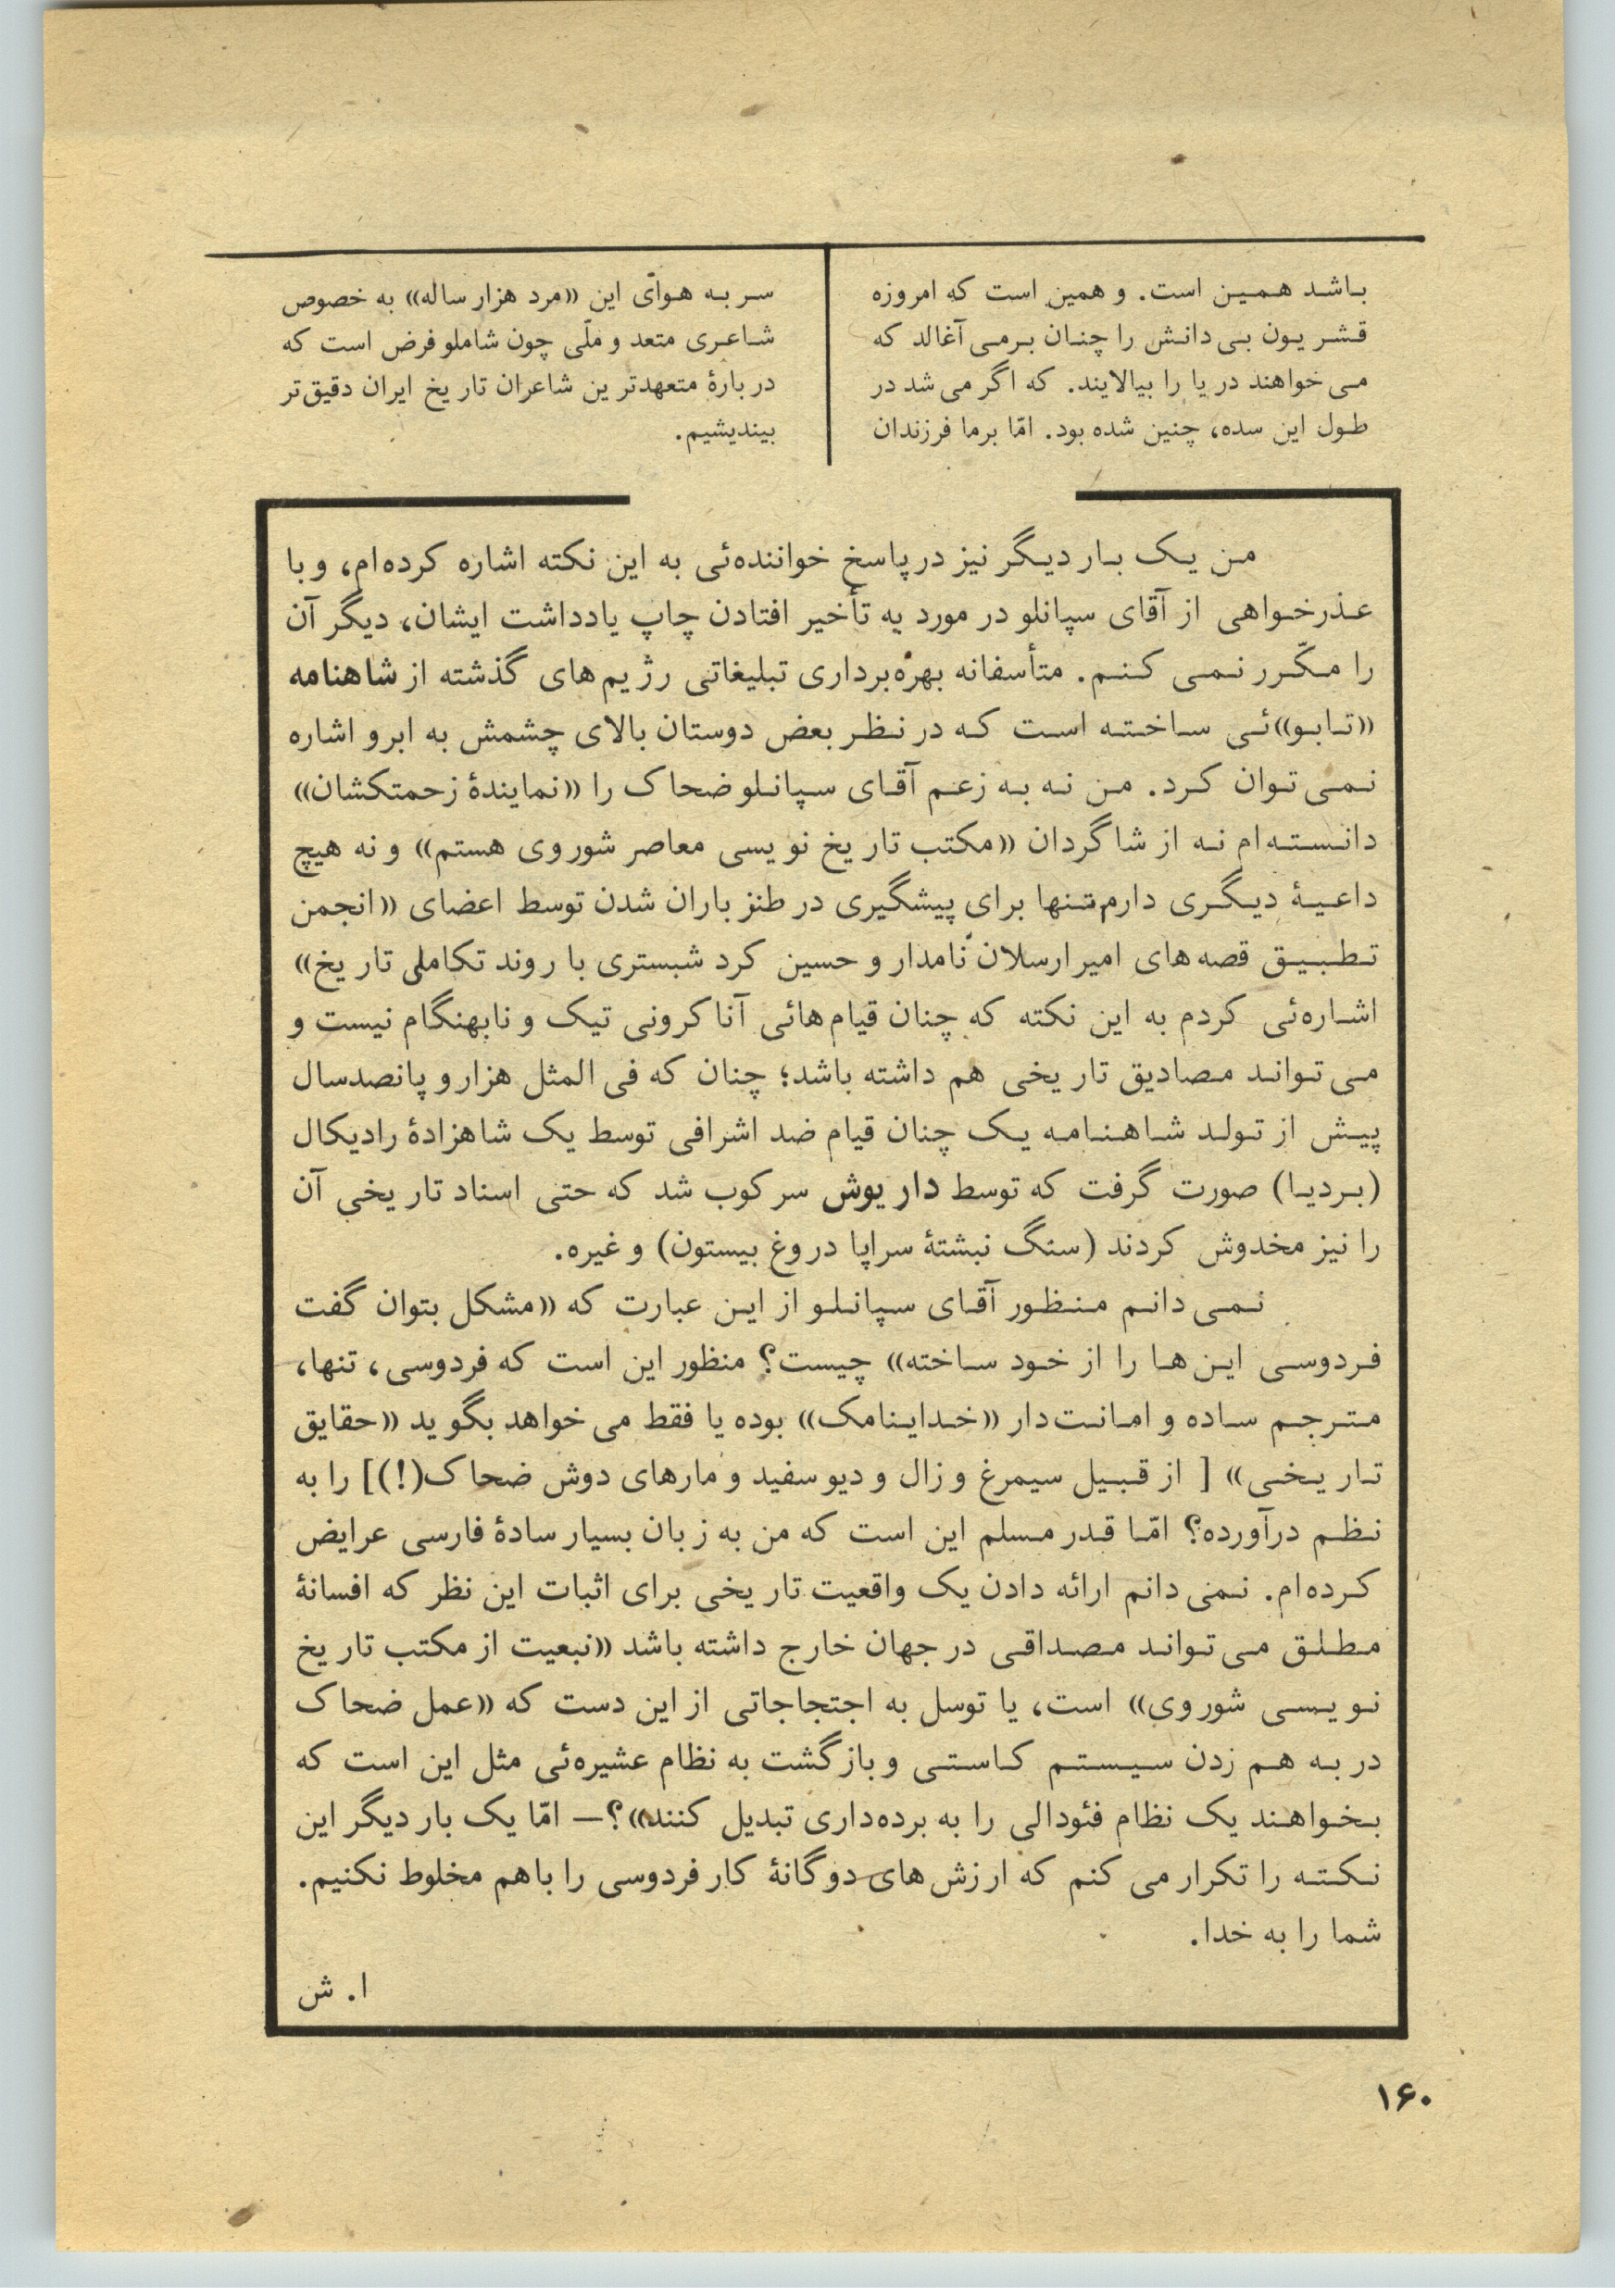 باشد همین است. و همین است که امروزه
قشریون بی‌دانش را چنان برمی‌آغالد که
می‌خواهند دریا را بیالایند. که اگر می‌شد در
طول این سده، چنین شده بود. امّا برما فرزندان
سر به هوای این «مرد هزار ساله» به خصوص
شاعری متعد و ملّی چون شاملو فرض است که
دربارهٔ متعهدترین شاعران تاریخ ایران دقیق‌تر
بیندیشیم.
من یک بار دیگر نیز در پاسخ خواننده‌ئی به این نکته اشاره کرده‌ام، و با
عذرخواهی از آقای سپانلو در مورد به تأخیر افتادن چاپ یادداشت ایشان، دیگر آن
را مکّرر نمی کنم. متأسفانه بهره‌برداری تبلیغاتی رژیم‌های گذشته از شاهنامه
«تابو»ئی ساخته است که در نظر بعض دوستان بالای چشمش به ابرو اشاره
نمی‌توان کرد. من نه به زعم آقای سپانلو ضحاک را «نمایندهٔ زحمتکشان»
دانسته‌ام نه از شاگردان «مکتب تاریخ نویسی معاصر شوروی هستم» و نه هیچ
داعیهٔ دیگری دارم، تنها برای پیشگیری در طنزباران شدن توسط اعضای «انجمن
تطبیق قصه‌های امیرارسلان نامدار و حسین کرد شبستری با روند تکاملی تاریخ»
اشاره‌ئی کردم به این نکته که چنان قیام‌هائی آناکرونی تیک و نابهنگام نیست و
می‌تواند مصادیق تاریخی هم داشته باشد؛ چنان که فی المثل هزار و پانصدسال
پیش از تولد شاهنامه یک چنان قیام ضد اشرافی توسط یک شاهزادهٔ رادیکال
(بردیا) صورت گرفت که توسط داریوش سرکوب شد که حتی اسناد تاریخی آن
را نیز مخدوش کردند (سنگ نبشتهٔ سراپا دروغ بیستون) و غیره.
نمی دانم منظور آقای سپانلو از این عبارت که «مشکل بتوان گفت
فردوسی این‌ها را از خود ساخته» چیست؟ منظور این است که فردوسی، تنها،
مترجم ساده و امانت‌دار «خداینامک» بوده یا فقط می خواهد بگوید «حقایق
تاریخی» [ از قبیل سیمرغ و زال و دیو سفید و مارهای دوش ضحاک(!)] را به
نظم درآورده؟ امّا قدر مسلم این است که من به زبان بسیار سادهٔ فارسی عرایض
کرده‌ام. نمی دانم ارائه دادن یک واقعیت تاریخی برای اثبات این نظر که افسانهٔ
مطلق می‌تواند مصداقی در جهان خارج داشته باشد «نبعیت از مکتب تاریخ
نویسی شوروی» است، یا توسل به اجتجاجاتی از این دست که «عمل ضحاک
در به هم زدن سیستم کاستی و بازگشت به نظام عشیره‌ئی مثل این است که
بخواهند یک نظام فئودالی را به برده‌داری تبدیل کنند»؟— امّا یک بار دیگر این
نکته را تکرار می کنم که ارزش‌های دوگانهٔ کار فردوسی را باهم مخلوط نکنیم.
شما را به خدا.
ا. ش
۱۶۰